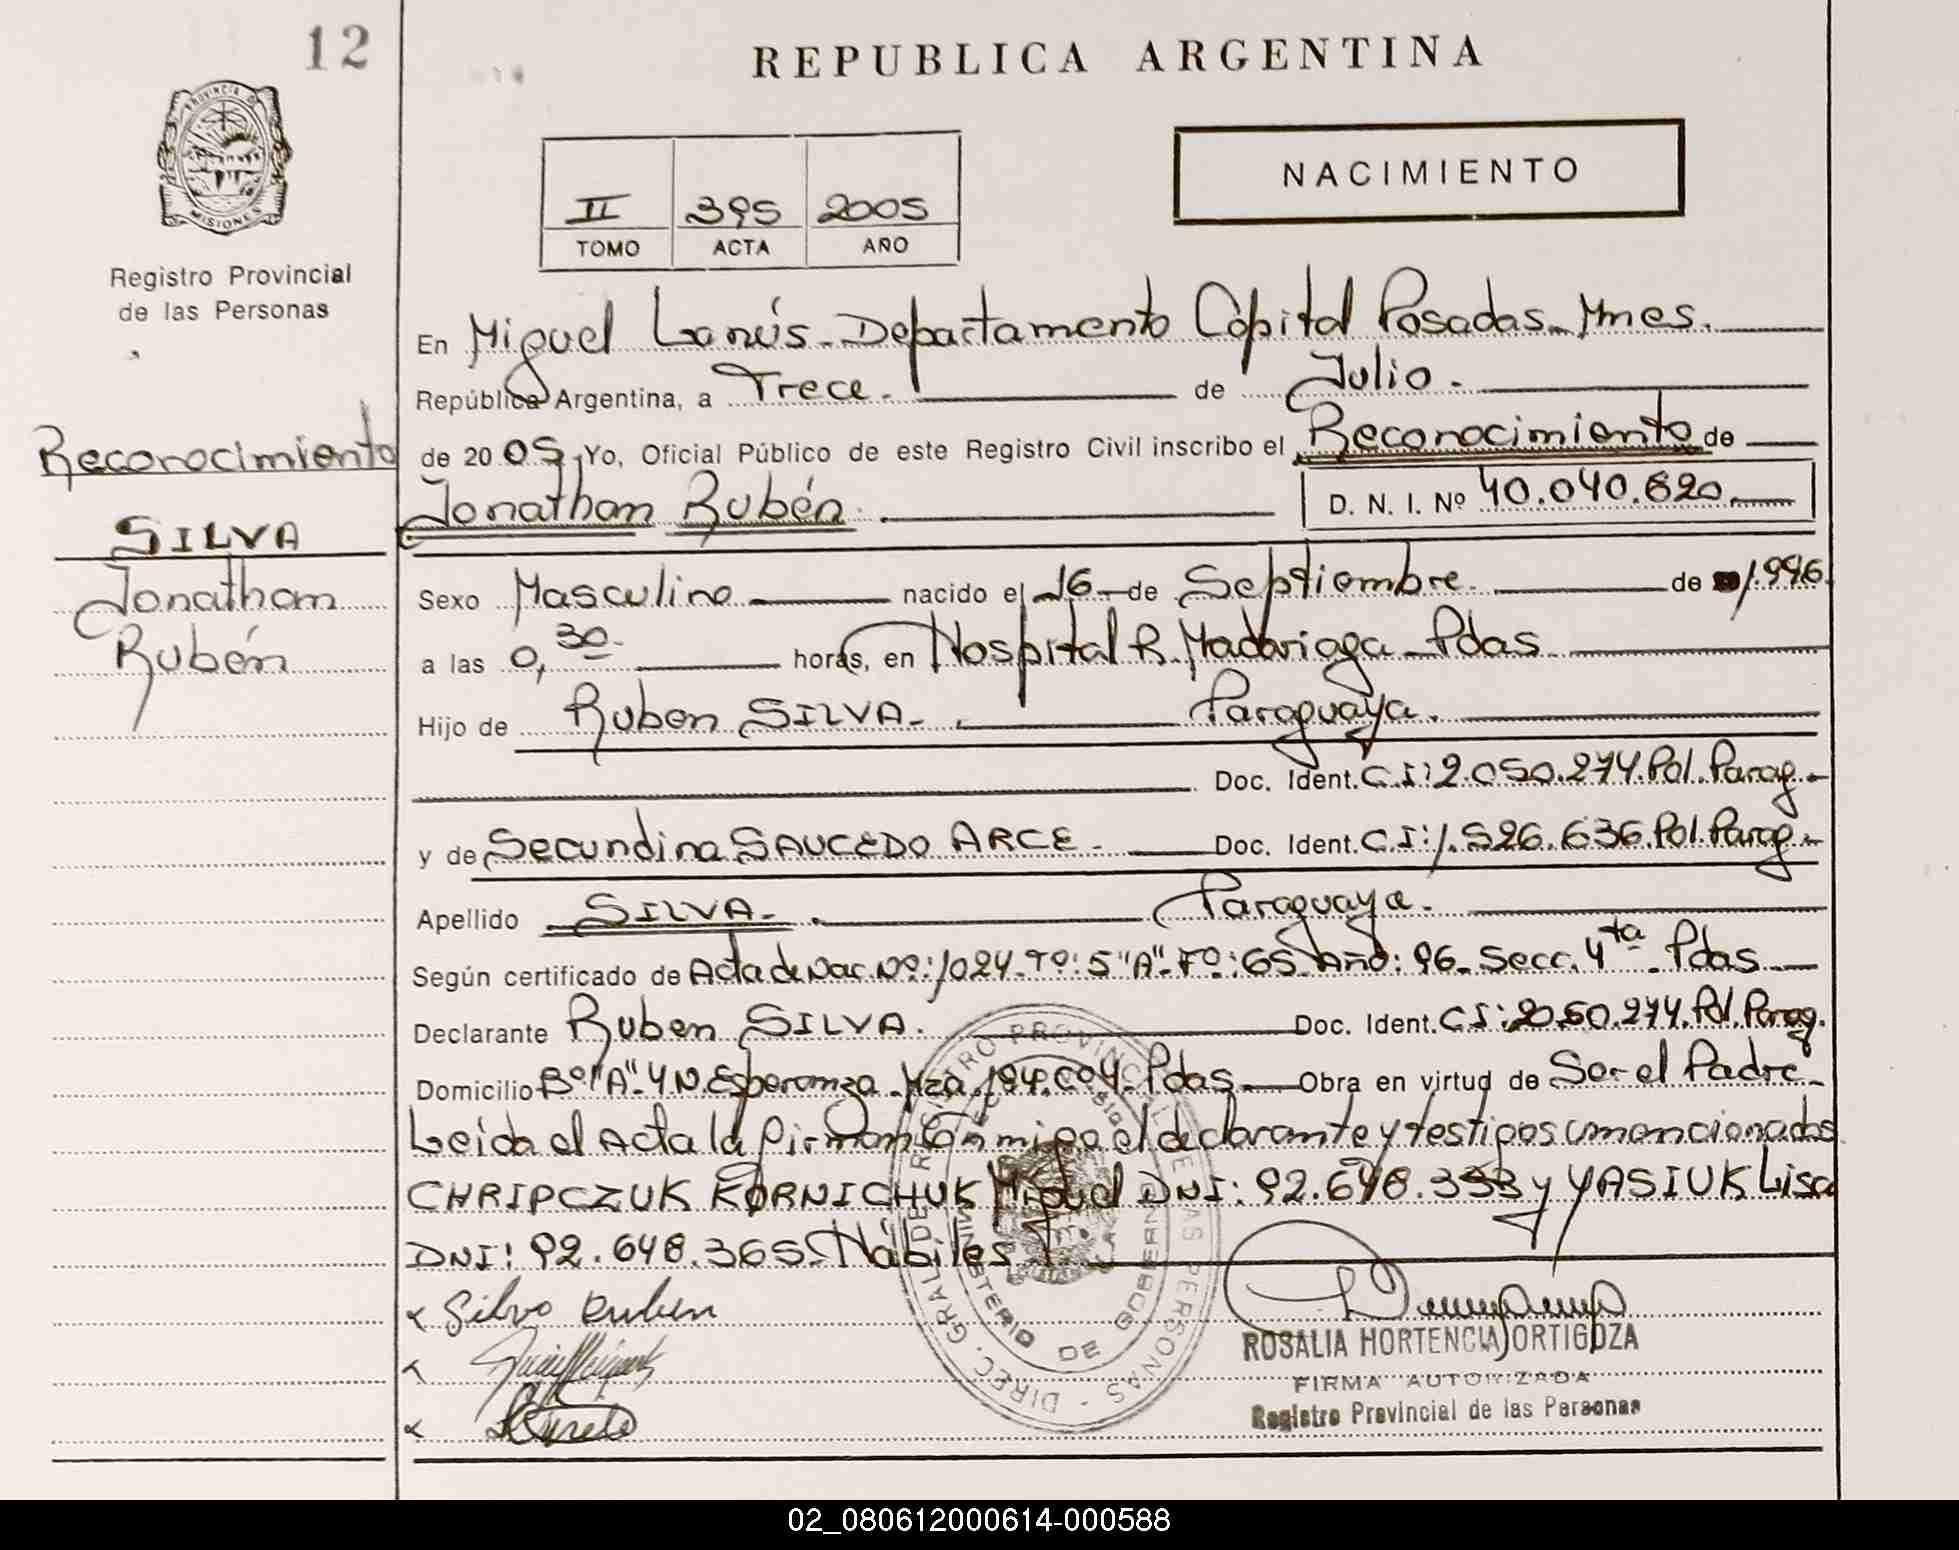 12
REPUBLICA ARGENTINA
PROVINCIA D
MISIONES
NACIMIENTO
II 395 2005
TOMO ACTA AÑO
Registro Provincial
de las Personas
En Miguel Lanús. Departamento Capital Posadas. Mnes.
República Argentina, a Trece. de Julio.
Reconocimiento
de 2005 Yo, Oficial Público de este Registro Civil inscribo el Reconocimiento de
Jonathan Rubén. D. N. I. Nº 40.040.820
SILVA
Jonathan
Rubén
Sexo Masculino nacido el 16 de Septiembre de 1.996
a las 0,30 horas, en Hospital R. Madariaga Pdas
Hijo de Ruben SILVA. Paraguaya.
Doc. Ident. C.I: 2.050.274. Pol. Parag.
y de Secundina SAUCEDO ARCE. Doc. Ident. C.I: 1.526.636. Pol. Parag.
Apellido SILVA. Paraguaya.
Según certificado de Acta de Nac. Nº: 1024. Tº: 5 "A". Fº: 65. Año: 96. Secc. 4ta. Pdas
Declarante Ruben SILVA. Doc. Ident. C.I: 2050.274. Pol. Parag.
Domicilio Bº "A" 4 N. Esperanza. Mza. 194. C 04. Pdas. Obra en virtud de Ser el Padre
Leida el Acta la firman Conmigo el declarante y testigos mencionados
CHRIPCZUK KORNICHUK Miguel DNI: 92.648.353 y YASIUK Lisa
DNI: 92.648.365. Hábiles
Silva Ruben
ROSALIA HORTENCIA ORTIGOZA
FIRMA AUTORIZADA
Registro Provincial de las Personas
DIREC. GRAL. DE REGISTRO PROVINCIAL DE LAS PERSONAS
MINISTERIO DE GOBIERNO
02_080612000614-000588